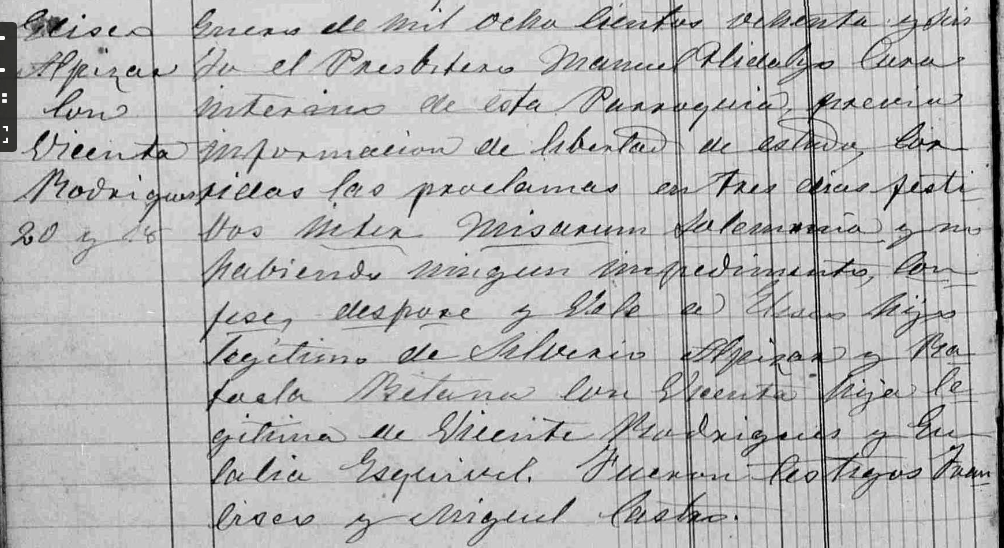 Eliseo
Alpizar
con
Vicenta
Rodrigues
20 y 18
Enero de mil ocho cientos ochenta y seis
Yo el Presbitero Manuel Hidalgo Cura
interino de esta Parroquia, previa
informacion de libertad de estado, cor
ridas las proclamas en tres dias festi
vos inter Misarum Solemnia y no
habiendo ningun impedimento, con
fese, despose y vele a Eliseo hijo
legitimo de Silverio Alpizar y Ra
faela Retana con Vicenta hija le
gitima de Vicente Rodrigues y Eu
lalia Esquivel. Fueron testigos Fran
cisco y Miguel Castro.